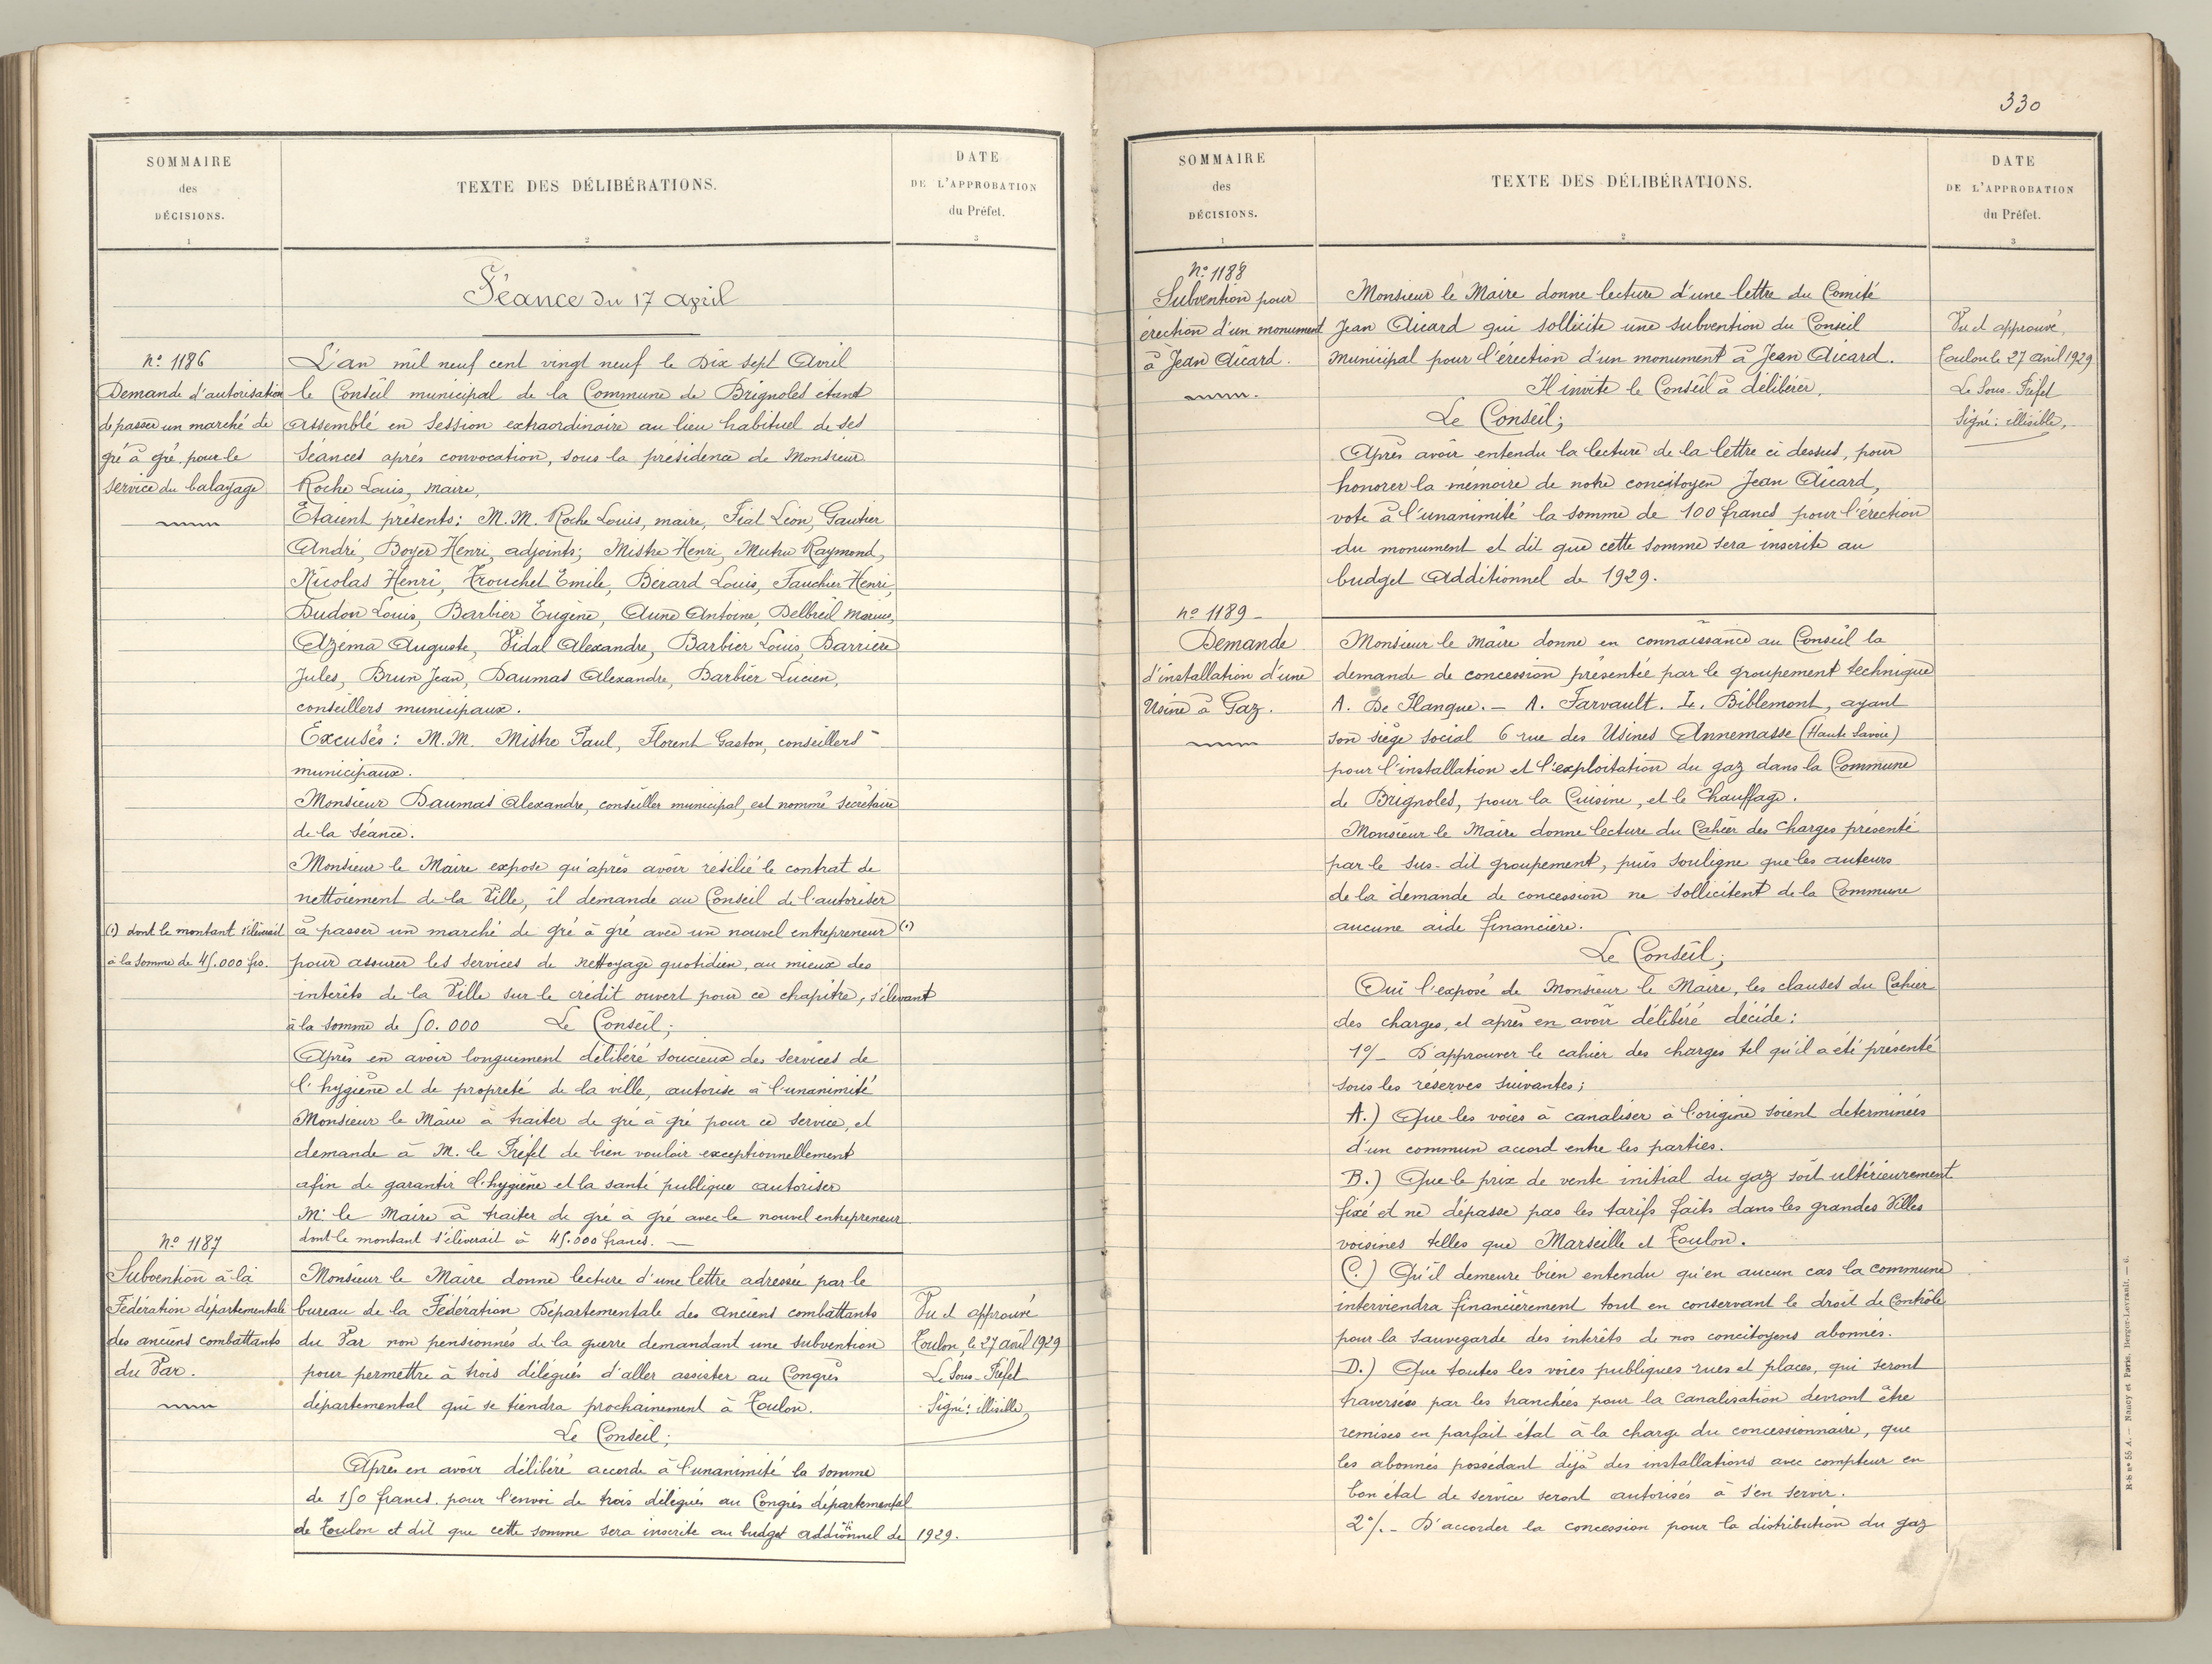 SOMMAIRE
des
DÉCISIONS.
1
TEXTE DES DÉLIBÉRATIONS.
2
DATE
DE L'APPROBATION
du Préfet.
3
Séance du 17 april
Nº 1186
Demande d'autorisation
de passer un marché de
gré à gré pour le
service du balayage
L'an mil neuf cent vingt neuf le Dix sept Avril
le Conseil municipal de la Commune de Brignoles étant
assemblé en Session extraordinaire au lieu habituel de ses
Séances après convocation, sous la présidence de Monsieur
Roche Louis, maire,
Etaient présents: M.M. Roche Louis, maire, Fiat Léon, Gautier
André, Boyer Henri, adjoints; Mistre Henri, Mutru Raymond,
Nicolas Henri, Trouchet Emile, Bérard Louis, Fauchier Henri,
Dudon Louis, Barbier Eugène, Aune Antoine, Delbreil Marius,
Azéma Auguste, Vidal Alexandre, Barbier Louis, Barrière
Jules, Brun Jean, Daumas Alexandre, Barbier Lucien,
conseillers municipaux.
Excusés: M.M. Mistre Paul, Florent Gaston, conseillers
municipaux.
Monsieur Daumas Alexandre, conseiller municipal, est nommé secrétaire
de la séance.
Monsieur le Maire expose qu'après avoir résilié le contrat de
nettoiement de la Ville, il demande au Conseil de l'autoriser
à passer un marché de gré à gré avec un nouvel entrepreneur (1)
(1) dont le montant s'élèverait
à la somme de 45.000 frs.
pour assurer les services de nettoyage quotidien, au mieux des
intérêts de la Ville sur le crédit ouvert pour ce chapitre, s'élevant
à la somme de 50.000 Le Conseil;
Après en avoir longuement délibéré soucieux des services de
l'hygiène et de propreté de la ville, autorise à l'unanimité
Monsieur le Maire à traiter de gré à gré pour ce service, et
demande à M. le Préfet de bien vouloir exceptionnellement
afin de garantir l'hygiène et la santé publique autoriser
M. le Maire à traiter de gré à gré avec le nouvel entrepreneur
dont le montant s'élèverait à 45.000 francs.
Nº 1187
Subvention à la
Fédération départementale
des anciens combattants
du Var.
Monsieur le Maire donne lecture d'une lettre adressée par le
bureau de la Fédération Départementale des Anciens combattants
du Var non pensionnés de la guerre demandant une subvention
pour permettre à trois délégués d'aller assister au Congrès
départemental qui se tiendra prochainement à Toulon.
Le Conseil;
Après en avoir délibéré accorde à l'unanimité la somme
de 150 francs pour l'envoi de trois délégués au Congrès départemental
de Toulon et dit que cette somme sera inscrite au budget additionnel de 1929.
Vu et approuvé
Toulon, le 27 avril 1929
Le Sous-Préfet
Signé: illisible,
330
SOMMAIRE
des
DÉCISIONS.
1
TEXTE DES DÉLIBÉRATIONS.
2
DATE
DE L'APPROBATION
du Préfet.
3
Nº 1188
Subvention pour
érection d'un monument
à Jean Aicard.
Monsieur le Maire donne lecture d'une lettre du Comité
Jean Aicard qui sollicite une subvention du Conseil
Municipal pour l'érection d'un monument à Jean Aicard.
Il invite le Conseil à délibérer.
Le Conseil;
Après avoir entendu la lecture de la lettre ci dessus, pour
honorer la mémoire de notre concitoyen Jean Aicard,
vote à l'unanimité la somme de 100 francs pour l'érection
du monument et dit que cette somme sera inscrite au
budget additionnel de 1929.
Vu et approuvé,
Toulon le 27 avril 1929
Le Sous-Préfet
Signé: illisible,
Nº 1189
Demande
d'installation d'une
Usine à Gaz.
Monsieur le Maire donne en connaissance au Conseil la
demande de concession présentée par le groupement technique
A. De Flanque. - A. Farvault. L. Biblemont, ayant
son siège social 6 rue des Usines Annemasse (Haute Savoie)
pour l'installation et l'exploitation du gaz dans la Commune
de Brignoles, pour la Cuisine, et le Chauffage.
Monsieur le Maire donne lecture du Cahier des Charges présenté
par le sus-dit groupement, puis souligne que les auteurs
de la demande de concession ne sollicitent de la Commune
aucune aide financière.
Le Conseil;
Oui l'exposé de Monsieur le Maire, les clauses du Cahier
des charges, et après en avoir délibéré décide:
1º/- D'approuver le cahier des charges tel qu'il a été présenté
sous les réserves suivantes;
A.) Que les voies à canaliser à l'origine soient determinées
d'un commun accord entre les parties.
B.) Que le prix de vente initial du gaz soit ultérieurement
fixé et ne dépasse pas les tarifs faits dans les grandes Villes
voisines telles que Marseille et Toulon.
C.) Qu'il demeure bien entendu qu'en aucun cas la commune
interviendra financièrement tout en conservant le droit de Contrôle
pour la sauvegarde des intérêts de nos concitoyens abonnés.
D.) Que toutes les voies publiques rues et places, qui seront
traversées par les tranchées pour la Canalisation devront être
remises en parfait état à la charge du concessionnaire, que
les abonnés possédant déjà des installations avec compteur en
bon état de service seront autorisés à s'en servir.
2º/.- D'accorder la concession pour la distribution du gaz
Nancy et Paris, Berger-Levrault. — 6.